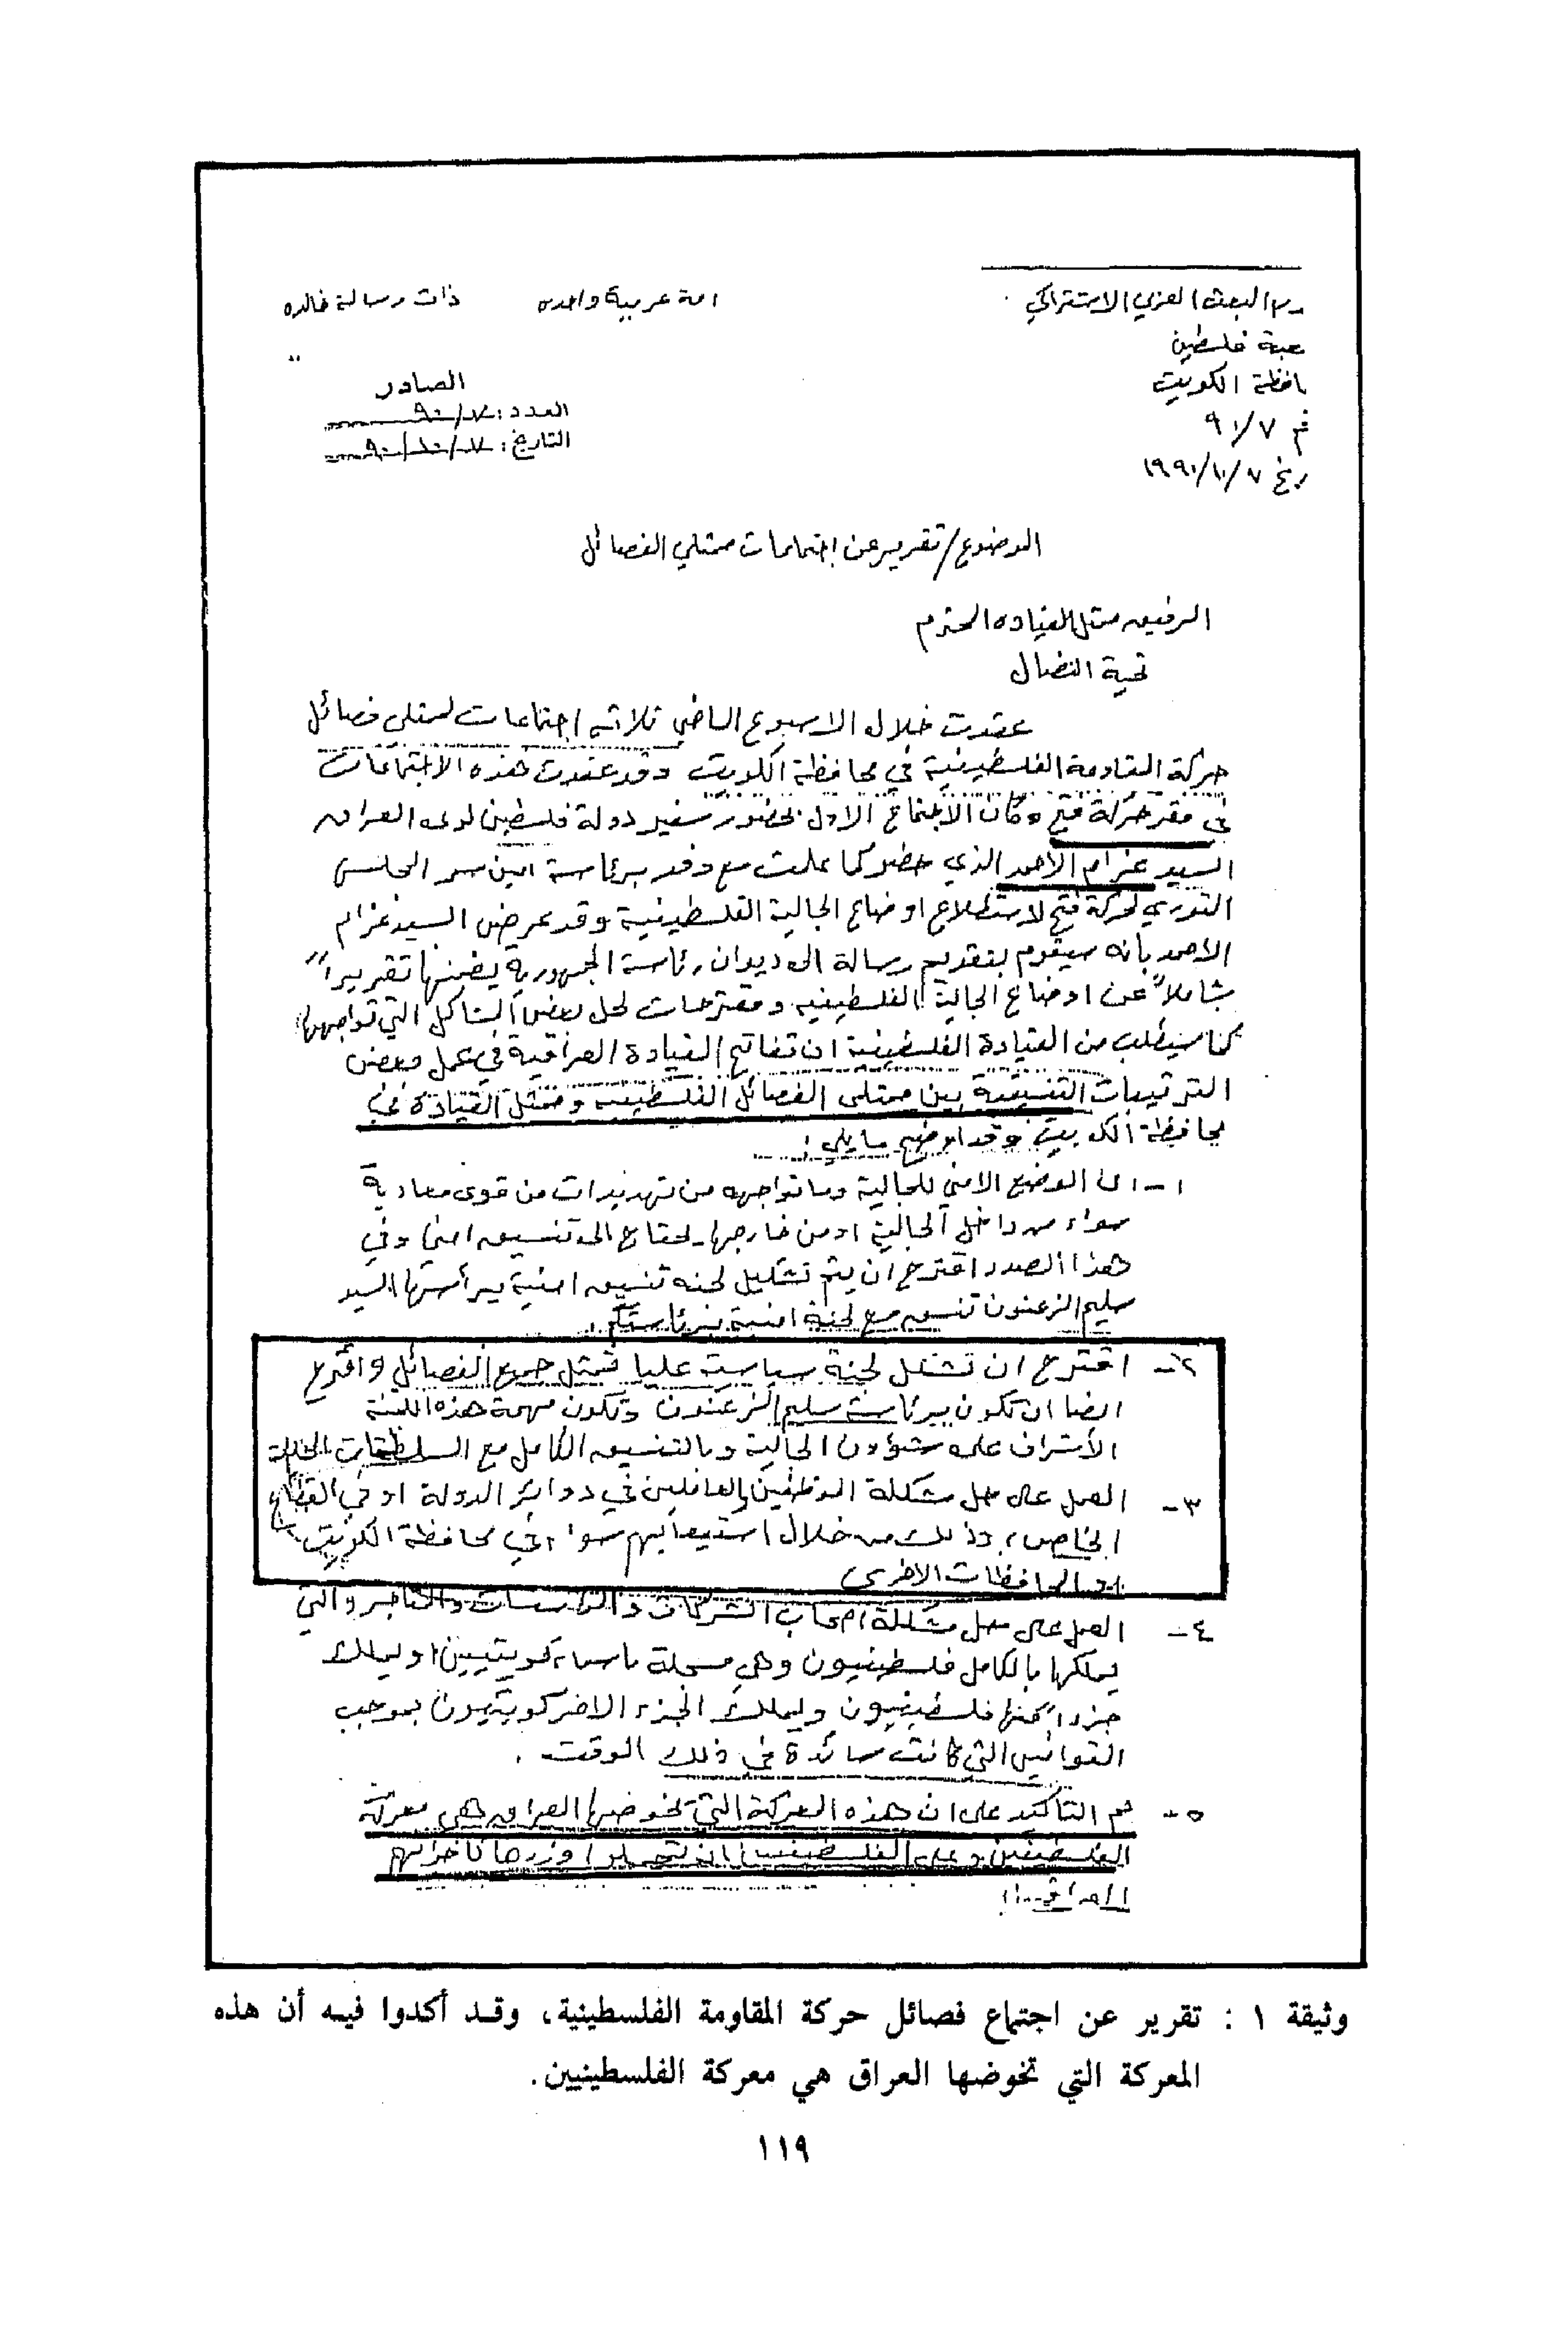 حزب البعث العربي الاشتراكي امة عربية واحده ذات رسالة خالده
شعبة فلسطين
محافظة الكويت
الصادر
العدد: ٩٠/
٩١/٧
التاريخ: ٩٠/١٠/
١٩٩٠/١٠/٧
الموضوع/ تقرير عن اجتماعات ممثلي الفصائل
الرفيق ممثل القياده المحترم
تحية النضال
عقدت خلال الاسبوع الماضي ثلاثه اجتماعات لممثلي فصائل
حركة المقاومة الفلسطينية في محافظة الكويت وقد عقدت هذه الاجتماعات
في مقر حركة فتح وكان الاجتماع الاول بحضور سفير دولة فلسطين لدى العراق
السيد عزام الاحمد الذي حضر كما علمت مع وفد برئاسة امين سر المجلس
الثوري لحركة فتح لاستطلاع اوضاع الجالية الفلسطينية وقد عرض السيد عزام
الاحمد بانه سيقوم بتقديم رسالة الى ديوان رئاسة الجمهورية يضمنها تقريراً
شاملاً عن اوضاع الجالية الفلسطينيه ومقترحات لحل بعض المشاكل التي تواجهها
كما سيطلب من القيادة الفلسطينية ان تفاتح القيادة العراقية في عمل بعض
الترتيبات التنسيقية بين ممثلي الفصائل الفلسطينيه وممثل القيادة في
محافظة الكويت وقد اوضح ما يلي:
١- ان الوضع الامني للجالية وما تواجهه من تهديدات من قوى معادية
سواء من داخل الجالية او من خارجها يحتاج الى تنسيق امني وفي
هذا الصدد اقترح ان يتم تشكيل لجنه تنسيق امنية يرأسها السيد
سليم الزعنون تنسق مع لجنة امنية برئاستكم.
٢- اقترح ان تشكل لجنة سياسية عليا تمثل جميع الفصائل واقترح
ايضا ان تكون برئاسة سليم الزعنون وتكون مهمة هذه اللجنة
الاشراف على شؤون الجالية وبالتنسيق الكامل مع السلطات المحلية
٣- العمل على حل مشكلة الموظفين العاملين في دوائر الدولة او في القطاع
الخاص، وذلك من خلال استيعابهم سواء في محافظة الكويت
او المحافظات الاخرى
٤- العمل على حل مشكلة اصحاب الشركات والمؤسسات والمتاجر والتي
يملكها بالكامل فلسطينيون وهي مسجلة باسماء كويتيين او يملك
جزءاً منها فلسطينيون ويملك الجزء الاخر كويتيون بموجب
القوانين التي كانت سائدة في ذلك الوقت.
٥- تم التاكيد على ان هذه المعركة التي تخوضها العراق هي معركة
الفلسطينين وعلى الفلسطينيين ان يتحملوا وزرها كاخوانهم
العراقيين
وثيقة ١ : تقرير عن اجتماع فصائل حركة المقاومة الفلسطينية، وقد أكدوا فيه أن هذه
المعركة التي تخوضها العراق هي معركة الفلسطينيين.
١١٩